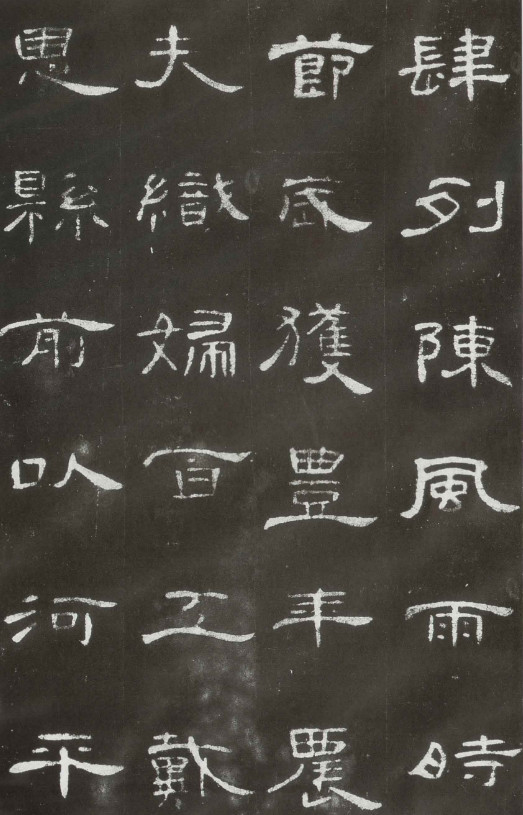 肆列陳風雨時
節歲獲豊年農
夫織婦百工戴
恩縣前以河平